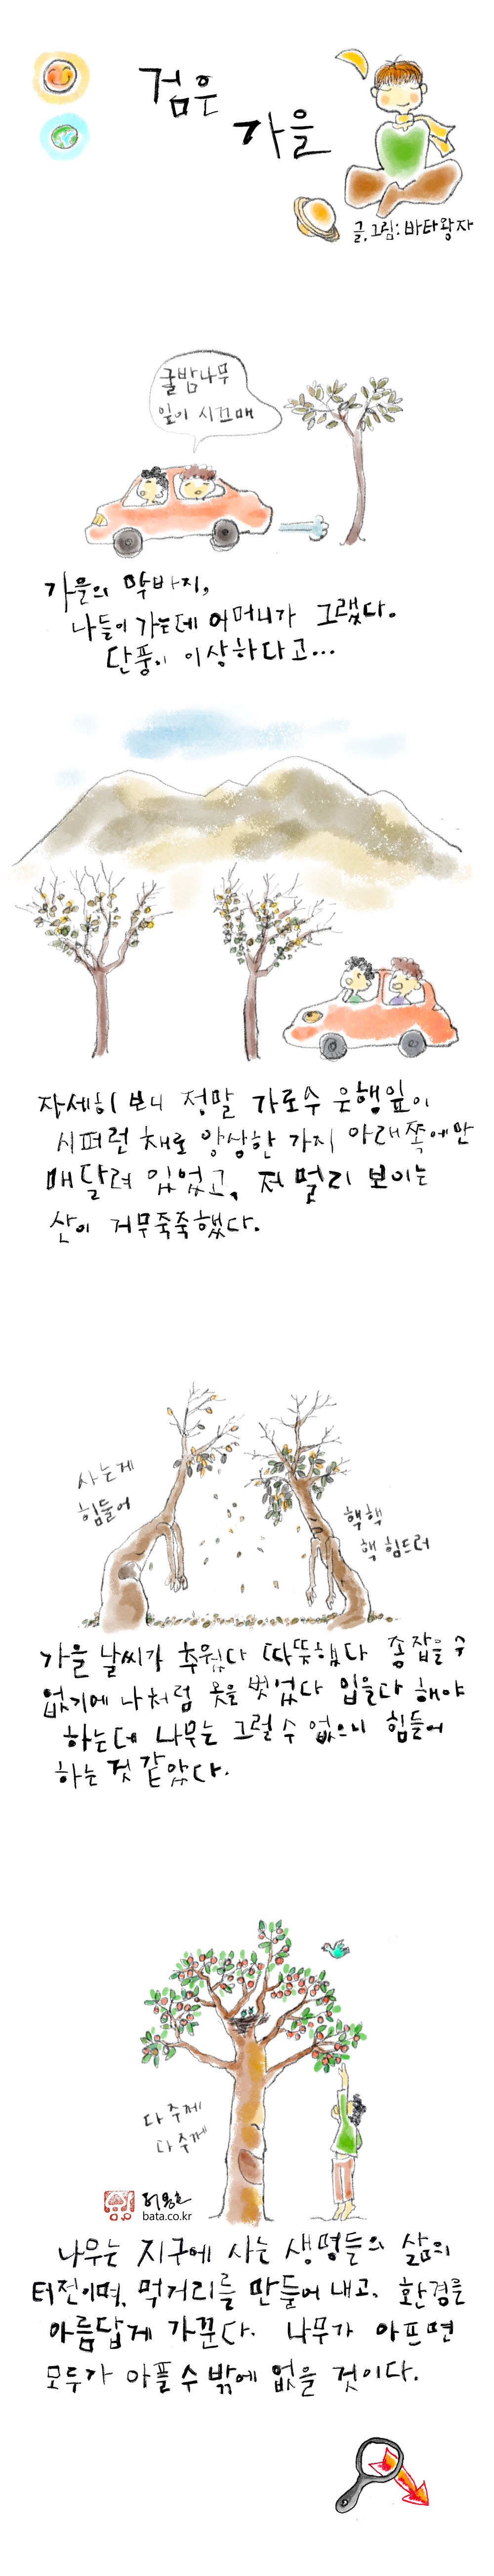 검은
가을
글, 그림: 바타왕자
굴밤나무
잎이 시끄매
가을의 막바지,
나들이 가는데 어머니가 그랬다.
단풍이 이상하다고...
자세히 보니 정말 가로수 은행잎이
시퍼런 채로 앙상한 가지 아래쪽에만
매달려 있었고, 저 멀리 보이는
산이 거무죽죽했다.
사는게
힘들어
핵핵
핵 힘드러
가을 날씨가 추웠다 따뜻했다 종잡을 수
없기에 나처럼 옷을 벗었다 입을다 해야
하는데 나무는 그럴 수 없으니 힘들어
하는 것 같았다.
다 주께
다 주께
bata.co.kr
나무는 지구에 사는 생명들의 삶의
터전이며, 먹거리를 만들어 내고, 환경을
아름답게 가꾼다. 나무가 아프면
모두가 아플 수 밖에 없을 것이다.